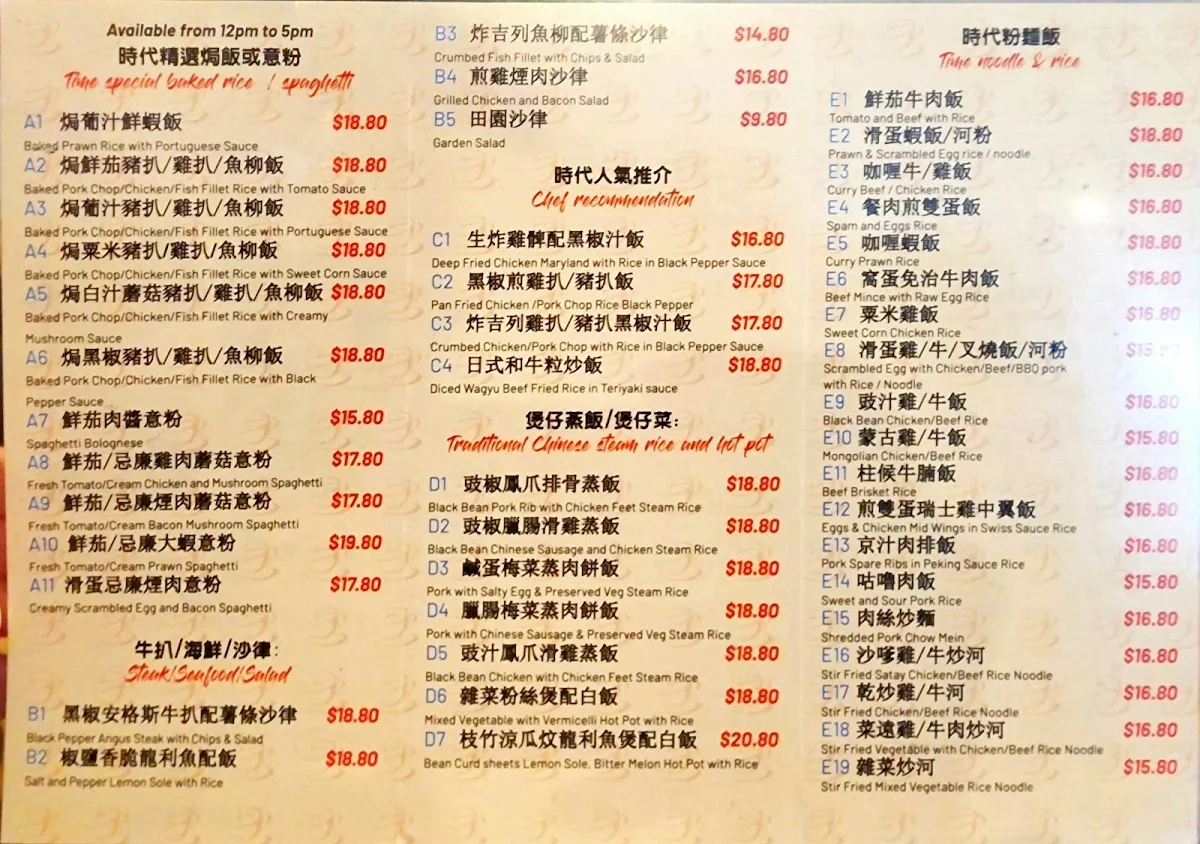 Available from 12pm to 5pm
時代精選焗飯或意粉
Time special baked rice / spaghetti
A1 焗葡汁鮮蝦飯 $18.80
Baked Prawn Rice with Portuguese Sauce
A2 焗鮮茄豬扒/雞扒/魚柳飯 $18.80
Baked Pork Chop/Chicken/Fish Fillet Rice with Tomato Sauce
A3 焗葡汁豬扒/雞扒/魚柳飯 $18.80
Baked Pork Chop/Chicken/Fish Fillet Rice with Portuguese Sauce
A4 焗粟米豬扒/雞扒/魚柳飯 $18.80
Baked Pork Chop/Chicken/Fish Fillet Rice with Sweet Corn Sauce
A5 焗白汁蘑菇豬扒/雞扒/魚柳飯 $18.80
Baked Pork Chop/Chicken/Fish Fillet Rice with Creamy
Mushroom Sauce
A6 焗黑椒豬扒/雞扒/魚柳飯 $18.80
Baked Pork Chop/Chicken/Fish Fillet Rice with Black
Pepper Sauce
A7 鮮茄肉醬意粉 $15.80
Spaghetti Bolognese
A8 鮮茄/忌廉雞肉蘑菇意粉 $17.80
Fresh Tomato/Cream Chicken and Mushroom Spaghetti
A9 鮮茄/忌廉煙肉蘑菇意粉 $17.80
Fresh Tomato/Cream Bacon Mushroom Spaghetti
A10 鮮茄/忌廉大蝦意粉 $19.80
Fresh Tomato/Cream Prawn Spaghetti
A11 滑蛋忌廉煙肉意粉 $17.80
Creamy Scrambled Egg and Bacon Spaghetti
牛扒/海鮮/沙律:
Steak/Seafood/Salad
B1 黑椒安格斯牛扒配薯條沙律 $18.80
Black Pepper Angus Steak with Chips & Salad
B2 椒鹽香脆龍利魚配飯 $18.80
Salt and Pepper Lemon Sole with Rice
B3 炸吉列魚柳配薯條沙律 $14.80
Crumbed Fish Fillet with Chips & Salad
B4 煎雞煙肉沙律 $16.80
Grilled Chicken and Bacon Salad
B5 田園沙律 $9.80
Garden Salad
時代人氣推介
Chef recommendation
C1 生炸雞髀配黑椒汁飯 $16.80
Deep Fried Chicken Maryland with Rice in Black Pepper Sauce
C2 黑椒煎雞扒/豬扒飯 $17.80
Pan Fried Chicken /Pork Chop Rice Black Pepper
C3 炸吉列雞扒/豬扒黑椒汁飯 $17.80
Crumbed Chicken/Pork Chop with Rice in Black Pepper Sauce
C4 日式和牛粒炒飯 $18.80
Diced Wagyu Beef Fried Rice in Teriyaki sauce
煲仔蒸飯/煲仔菜:
Traditional Chinese steam rice and hot pot
D1 豉椒鳳爪排骨蒸飯 $18.80
Black Bean Pork Rib with Chicken Feet Steam Rice
D2 豉椒臘腸滑雞蒸飯 $18.80
Black Bean Chinese Sausage and Chicken Steam Rice
D3 鹹蛋梅菜蒸肉餅飯 $18.80
Pork with Salty Egg & Preserved Veg Steam Rice
D4 臘腸梅菜蒸肉餅飯 $18.80
Pork with Chinese Sausage & Preserved Veg Steam Rice
D5 豉汁鳳爪滑雞蒸飯 $18.80
Black Bean Chicken with Chicken Feet Steam Rice
D6 雜菜粉絲煲配白飯 $18.80
Mixed Vegetable with Vermicelli Hot Pot with Rice
D7 枝竹涼瓜炆龍利魚煲配白飯 $20.80
Bean Curd sheets Lemon Sole. Bitter Melon Hot Pot with Rice
時代粉麵飯
Time noodle & rice
E1 鮮茄牛肉飯 $16.80
Tomato and Beef with Rice
E2 滑蛋蝦飯/河粉 $18.80
Prawn & Scrambled Egg rice / noodle
E3 咖喱牛/雞飯 $16.80
Curry Beef / Chicken Rice
E4 餐肉煎雙蛋飯 $16.80
Spam and Eggs Rice
E5 咖喱蝦飯 $18.80
Curry Prawn Rice
E6 窩蛋免治牛肉飯 $16.80
Beef Mince with Raw Egg Rice
E7 粟米雞飯 $16.80
Sweet Corn Chicken Rice
E8 滑蛋雞/牛/叉燒飯/河粉
Scrambled Egg with Chicken/Beef/BBQ pork
with Rice / Noodle
E9 豉汁雞/牛飯 $16.80
Black Bean Chicken/Beef Rice
E10 蒙古雞/牛飯 $15.80
Mongolian Chicken/Beef Rice
E11 柱候牛腩飯 $16.80
Beef Brisket Rice
E12 煎雙蛋瑞士雞中翼飯 $16.80
Eggs & Chicken Mid Wings in Swiss Sauce Rice
E13 京汁肉排飯 $16.80
Pork Spare Ribs in Peking Sauce Rice
E14 咕嚕肉飯 $15.80
Sweet and Sour Pork Rice
E15 肉絲炒麵 $16.80
Shredded Pork Chow Mein
E16 沙嗲雞/牛炒河 $16.80
Stir Fried Satay Chicken/Beef Rice Noodle
E17 乾炒雞/牛河 $16.80
Stir Fried Chicken/Beef Rice Noodle
E18 菜遠雞/牛肉炒河 $16.80
Stir Fried Vegetable with Chicken/Beef Rice Noodle
E19 雜菜炒河 $15.80
Stir Fried Mixed Vegetable Rice Noodle